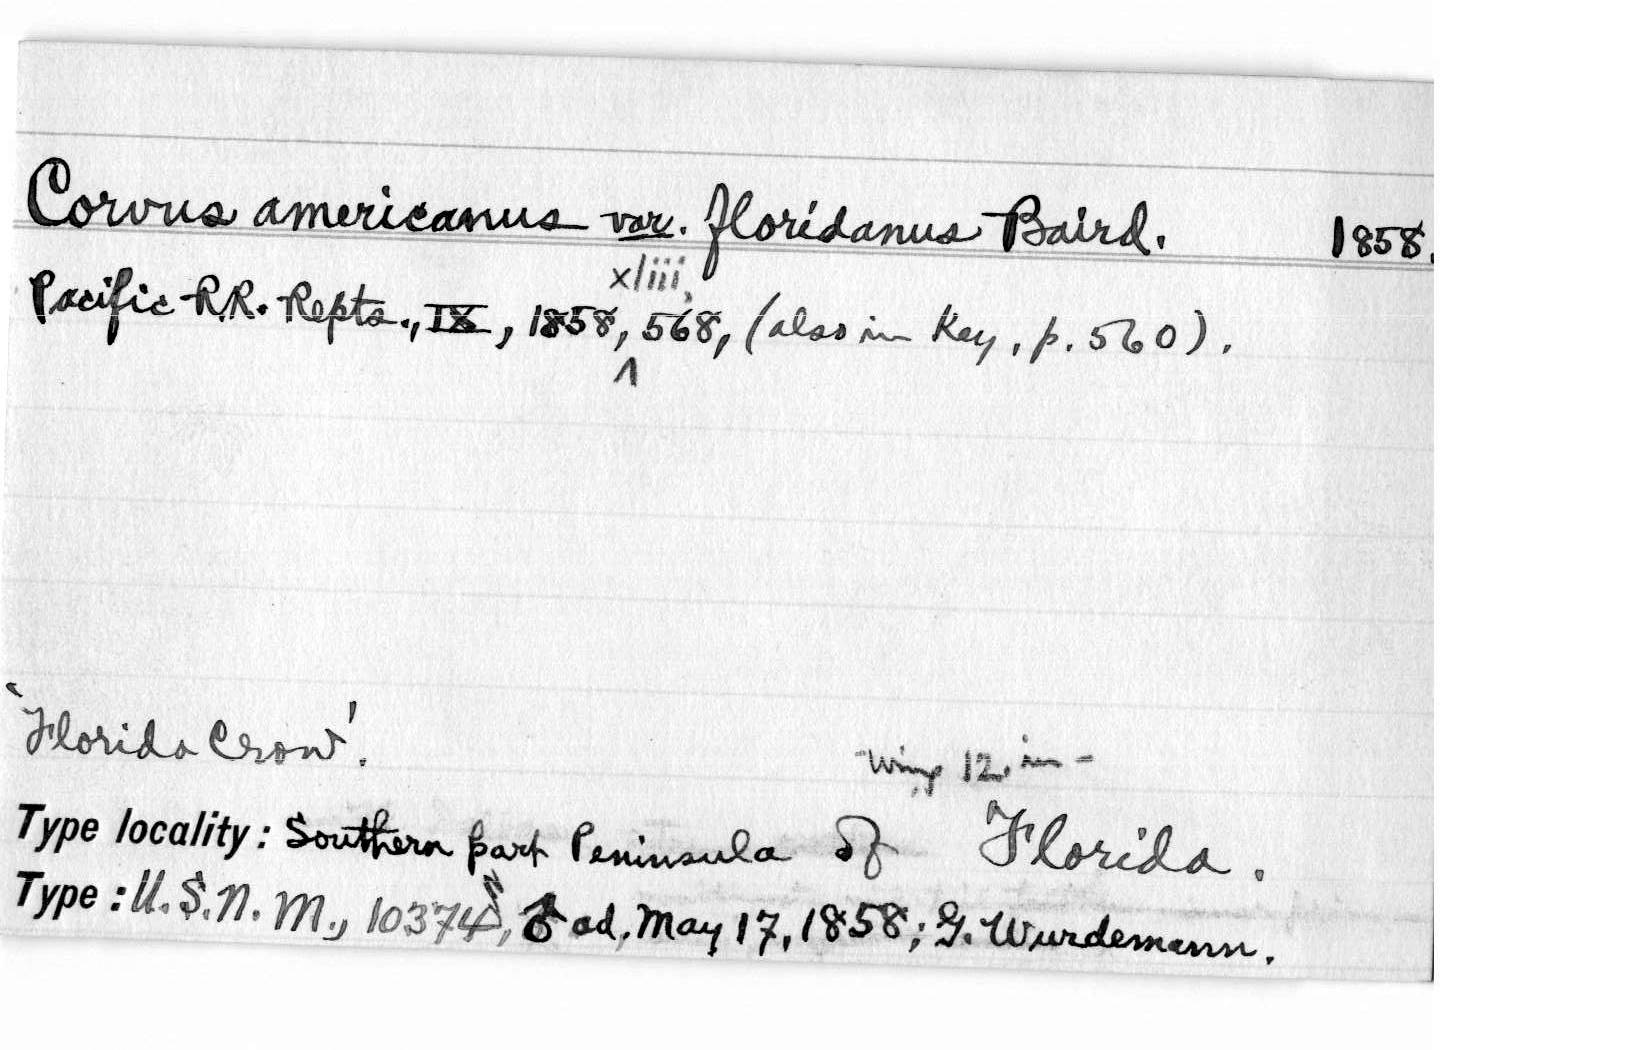 Corvus americanus var. floridanus Baird. 1858.
xliii,
Pacific R.R. Repts., IX, 1858, 568, (also in Key, p. 560).
'Florida Crow'.
Wing 12. in -
Type locality: Southern part Peninsula of Florida.
Type: U.S.N.M., 10374, ♂ ad, May 17, 1858; G. Wurdemann.